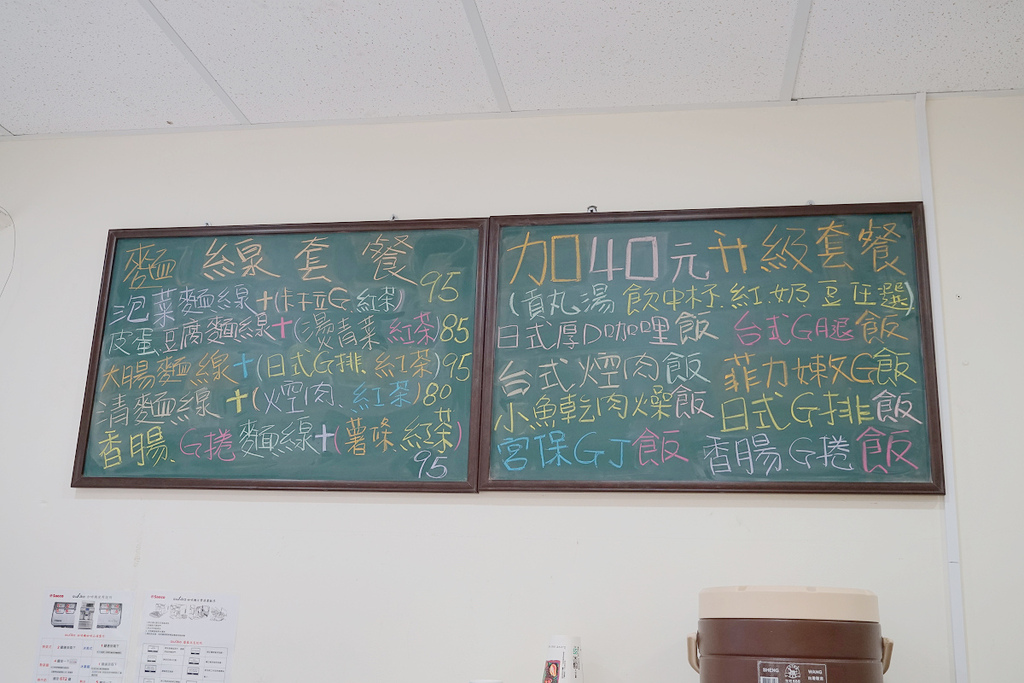 麵線套餐
泡菜麵線+(卡拉G.紅茶) 95
皮蛋豆腐麵線+(燙青菜 紅茶)85
大腸麵線+(日式G排.紅茶)95
清麵線+(煙肉.紅茶)80
香腸.G捲麵線+(薯條.紅茶)
95
加40元升級套餐
(貢丸湯 飲中杯.紅.奶.豆任選)
日式厚D咖哩飯 台式G腿飯
台式煙肉飯 菲力嫩G飯
小魚乾肉燥飯 日式G排飯
宮保GJ飯 香腸.G捲飯
Saeco
Saeco
SHENG WANG